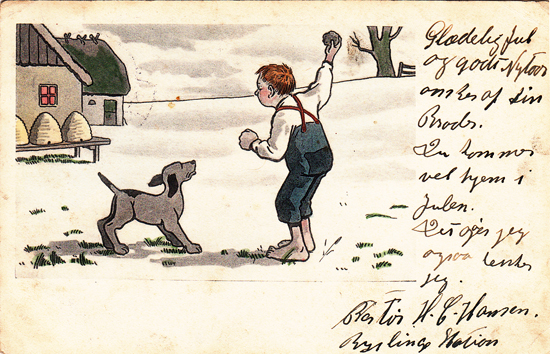 Glædelig Jul
og godt Nytaar
ønskes af din
Broder.
Du kommer
vel hjem i
Julen.
jeg
ogsaa tænker
jeg.
H. C. Hansen.
Station